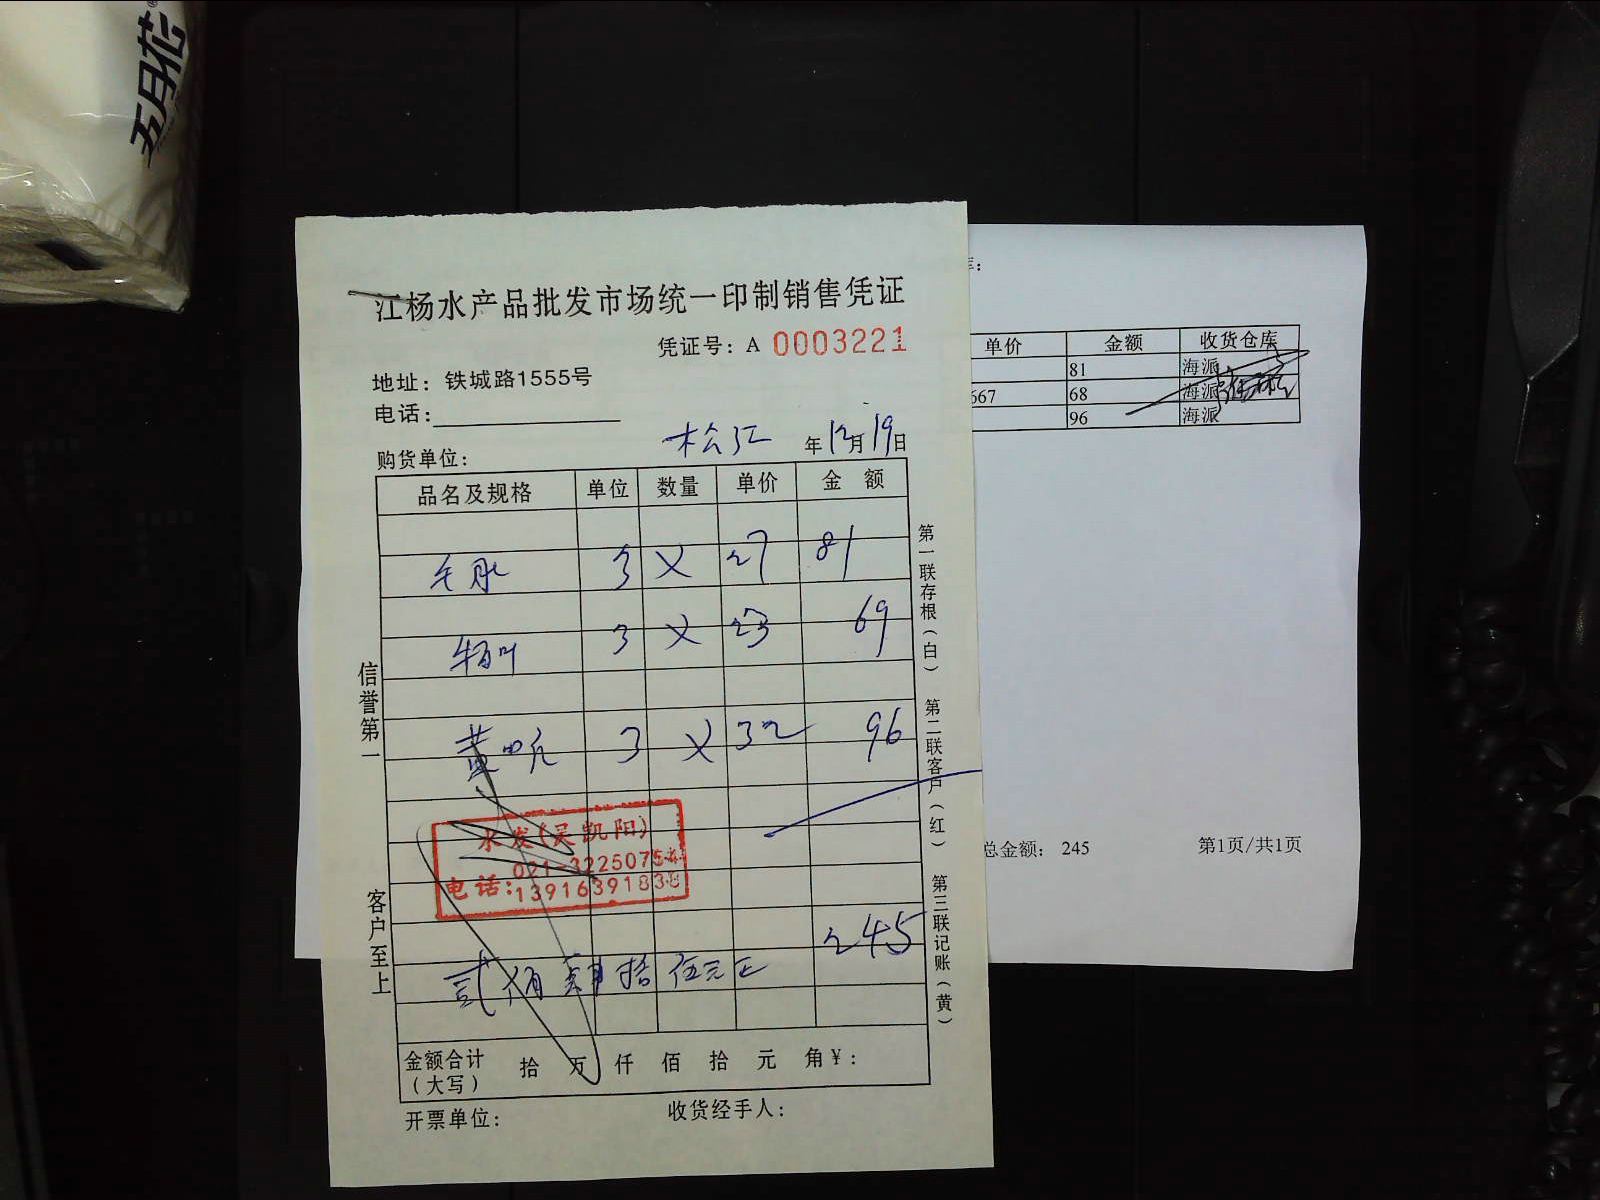 五月花
江杨水产品批发市场统一印制销售凭证
凭证号：A 0003221
地址：铁城路1555号
电话：
购货单位： 松江 年12月19日
品名及规格 单位 数量 单价 金 额
毛肚 3 × 27 81
牛百叶 3 × 23 69
黄喉 3 × 32 96
水发(吴凯阳)
电话：
245
贰佰肆拾伍元正
金额合计（大写） 拾 万 仟 佰 拾 元 角￥：
开票单位： 收货经手人：
信誉第一
客户至上
第一联存根（白）
第二联客户（红）
第三联记账（黄）
单价 金额 收货仓库
81 海派
667 68 海派
96 海派
总金额： 245 第1页/共1页